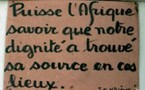 Puisse l'Afrique
savoir que notre
dignité a trouvé
sa source en ces
lieux.